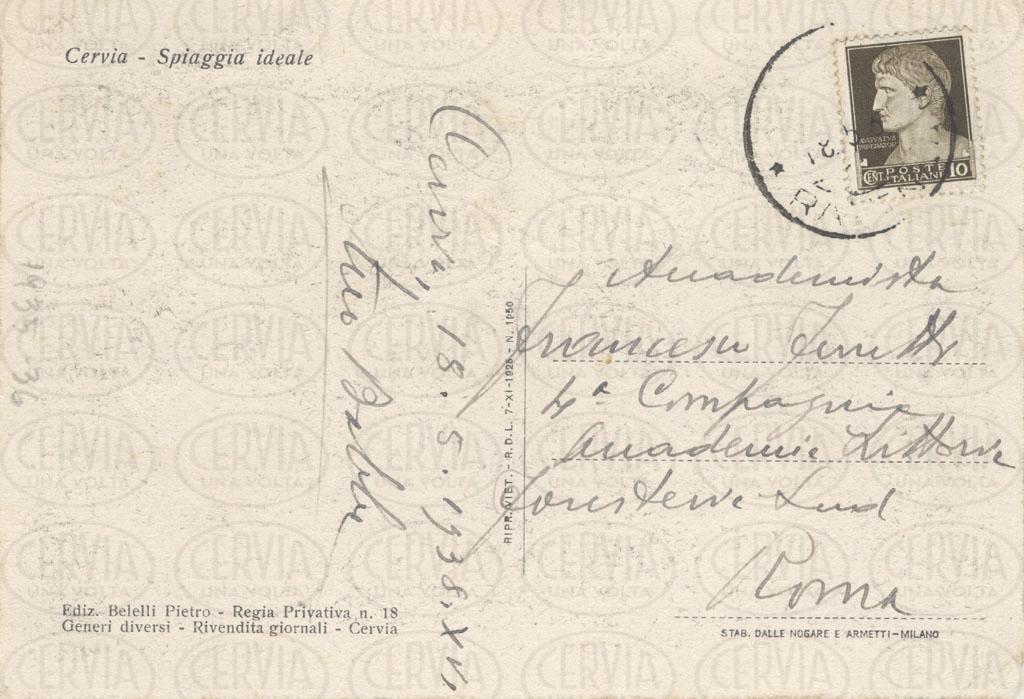 Cervia - Spiaggia ideale
AVGVSTVS
IMPERATOR
CENT. POSTE ITALIANE 10
Cervia, 18.5.1938.XVI
Tuo Babbo
1935-36
RIPR. VIET. - R.D.L. 7-XI-1925 - N. 1950
Accademista
Francesco
4ª Compagnia
Accademia Littoria
Foresteria Sud
Roma
Ediz. Belelli Pietro - Regia Privativa n. 18
Generi diversi - Rivendita giornali - Cervia
STAB. DALLE NOGARE E ARMETTI-MILANO
CERVIA
UNA VOLTA